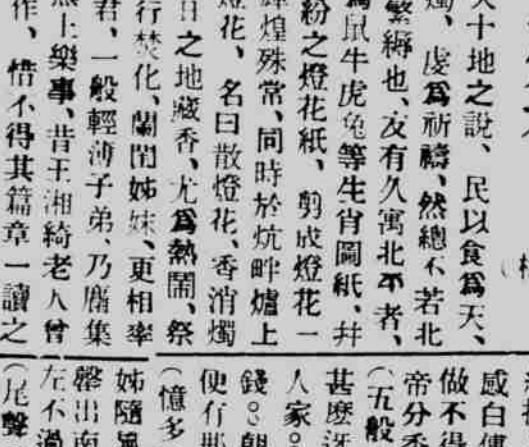 十地之說、民以食爲天、
燭、虔爲祈禱、然總不若北
繁縟也、友有久寓北平者、
鼠牛虎兔等生肖圖紙、幷
紛之燈花紙、剪成燈花一
煌殊常、同時於炕畔爐上
燈花、名曰散燈花、香消燭
日之地藏香、尤爲熱鬧、祭
行焚化、闌閨姊妹、更相率
君、一般輕薄子弟、乃麕集
樂事、昔王湘綺老人曾
作、惜不得其篇章一讀之
感白
做不得
帝分
（五般
甚麼
人家。
錢。朝
便有那
（憶多
姊隨
罄出南
左不過
（尾聲